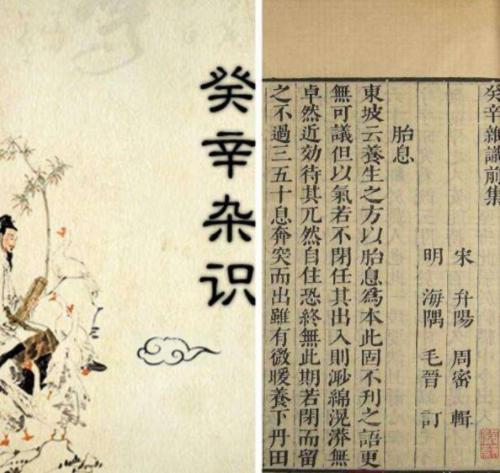 癸辛杂识
癸辛雜識前集
宋 弁陽 周密 輯
明 海隅 毛晉 訂
胎息
東坡云養生之方以胎息爲本此固不刊之語更
無可議但以氣若不閉任其出入則渺綿滉漭無
卓然近効待其兀然自住恐終無此期若閉而留
之不過三五十息奔突而出雖有微暖養下丹田